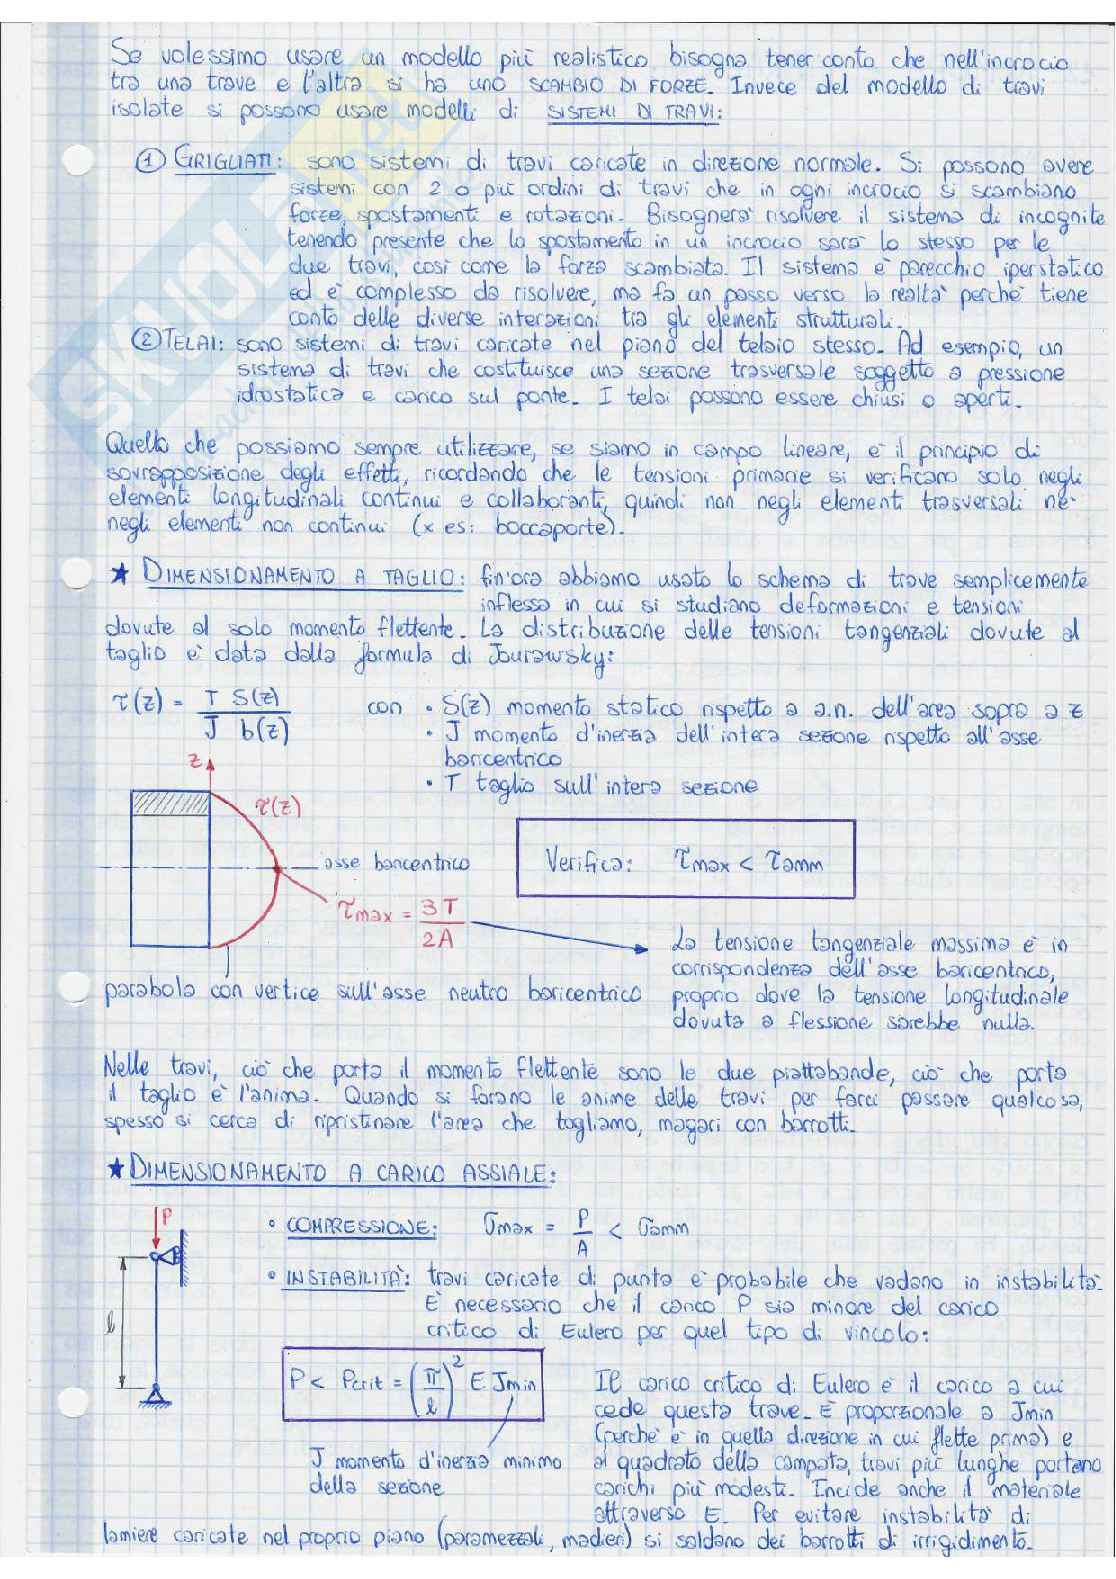 Se volessimo usare un modello più realistico bisogna tener conto che nell'incrocio
tra una trave e l'altra si ha uno SCAMBIO DI FORZE. Invece del modello di travi
isolate si possono usare modelli di SISTEMI DI TRAVI:
① GRIGLIATI: sono sistemi di travi caricate in direzione normale. Si possono avere
sistemi con 2 o più ordini di travi che in ogni incrocio si scambiano
forze, spostamenti e rotazioni. Bisognerà risolvere il sistema di incognite
tenendo presente che lo spostamento in un incrocio sarà lo stesso per le
due travi, così come la forza scambiata. Il sistema è parecchio iperstatico
ed è complesso da risolvere, ma fa un passo verso la realtà perché tiene
conto delle diverse interazioni tra gli elementi strutturali.
② TELAI: sono sistemi di travi caricate nel piano del telaio stesso. Ad esempio, un
sistema di travi che costituisce una sezione trasversale soggetto a pressione
idrostatica e carico sul ponte. I telai possono essere chiusi o aperti.
Quello che possiamo sempre utilizzare, se siamo in campo lineare, è il principio di
sovrapposizione degli effetti, ricordando che le tensioni primarie si verificano solo negli
elementi longitudinali continui e collaboranti, quindi non negli elementi trasversali né
negli elementi non continui (x es: boccaporte).
★ DIMENSIONAMENTO A TAGLIO: fin'ora abbiamo usato lo schema di trave semplicemente
inflessa in cui si studiano deformazioni e tensioni
dovute al solo momento flettente. La distribuzione delle tensioni tangenziali dovute al
taglio è data dalla formula di Jourawsky:
τ(z) = T S(z) / J b(z) con • S(z) momento statico rispetto a a.n. dell'area sopra a z
• J momento d'inerzia dell'intera sezione rispetto all'asse
baricentrico
• T taglio sull'intera sezione
z
τ(z)
asse baricentrico
Verifica: τmax < τamm
τmax = 3T / 2A
La tensione tangenziale massima è in
corrispondenza dell'asse baricentrico,
proprio dove la tensione longitudinale
dovuta a flessione sarebbe nulla.
parabola con vertice sull'asse neutro baricentrico
Nelle travi, ciò che porta il momento flettente sono le due piattabande, ciò che porta
il taglio è l'anima. Quando si forano le anime delle travi per farci passare qualcosa,
spesso si cerca di ripristinare l'area che togliamo, magari con barrotti.
★ DIMENSIONAMENTO A CARICO ASSIALE:
P
l
• COMPRESSIONE: σmax = P / A < σamm
• INSTABILITÀ: travi caricate di punta è probabile che vadano in instabilità.
È necessario che il carico P sia minore del carico
critico di Eulero per quel tipo di vincolo:
P < Pcrit = (π / l)² E Jmin
J momento d'inerzia minimo
della sezione
Il carico critico di Eulero è il carico a cui
cede questa trave. È proporzionale a Jmin
(perché è in quella direzione in cui flette prima) e
al quadrato della campata, travi più lunghe portano
carichi più modesti. Incide anche il materiale
attraverso E. Per evitare instabilità di
lamiere caricate nel proprio piano (paramezzali, madieri) si saldano dei barrotti di irrigidimento.